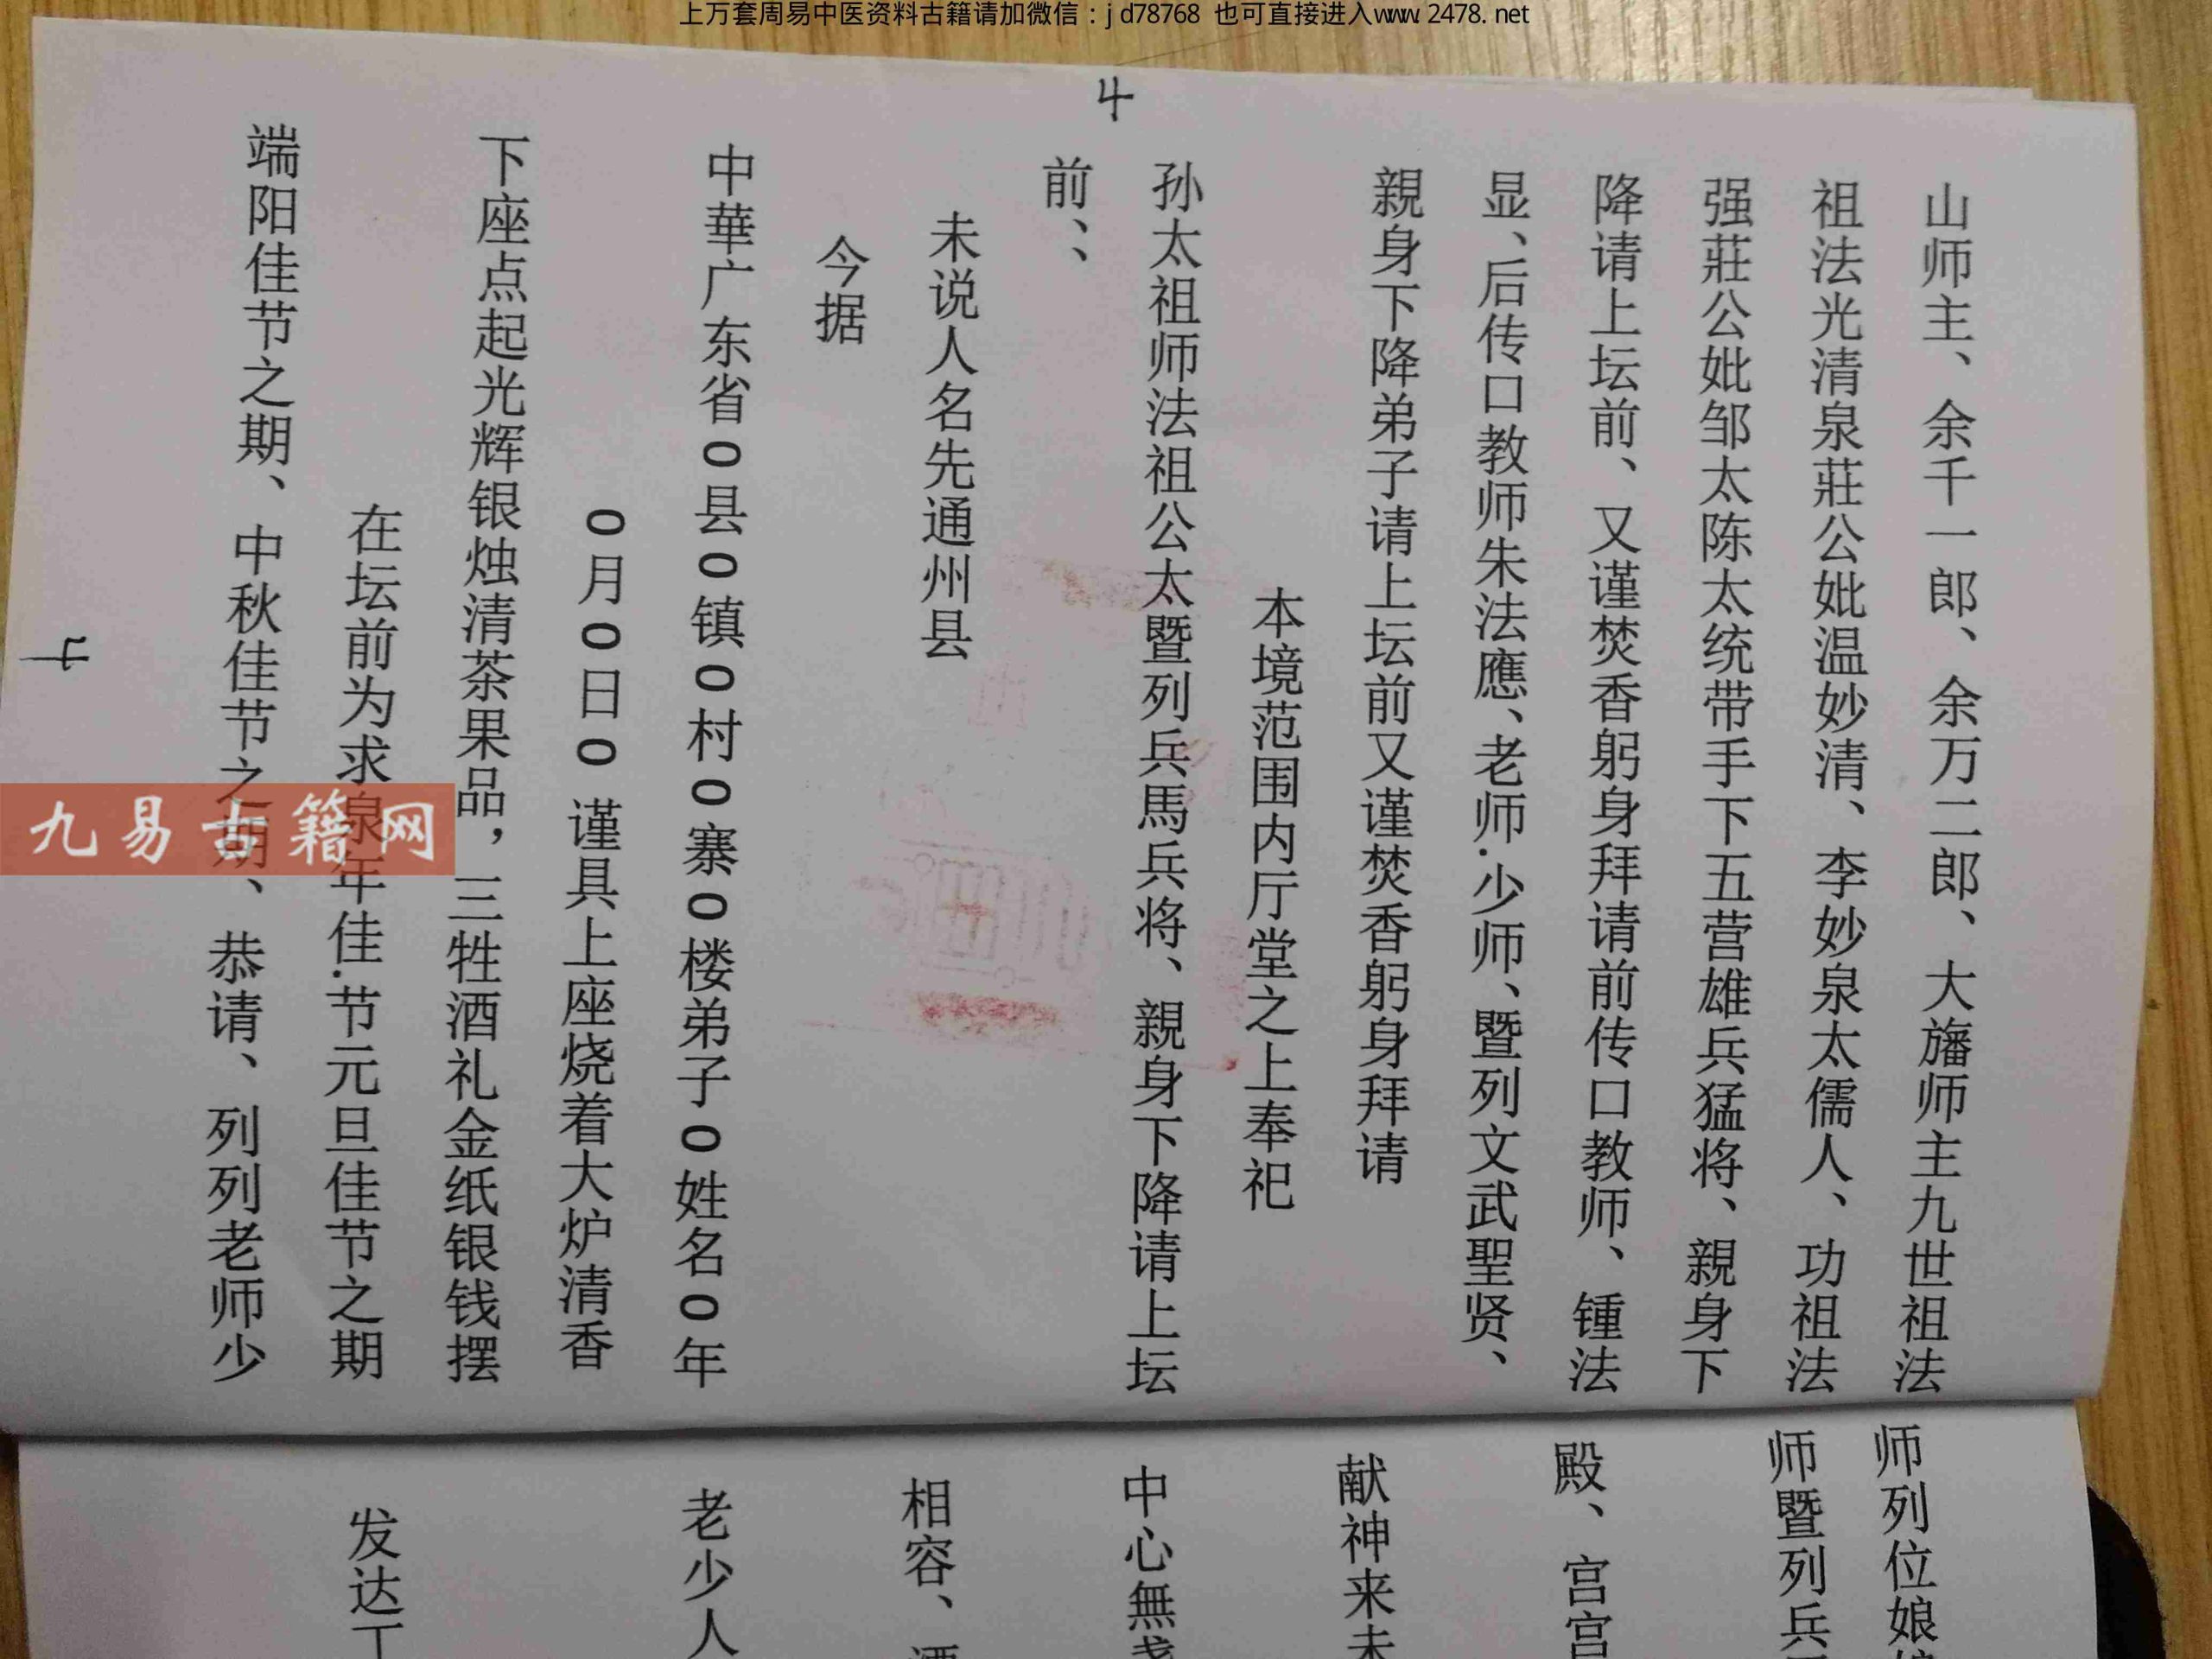 上万套周易中医资料古籍请加微信：jd78768 也可直接进入www.2478.net
4
山师主、余千一郎、余万二郎、大旛师主九世祖法
祖法光清泉莊公妣温妙清、李妙泉太儒人、功祖法
强莊公妣邹太陈太统带手下五营雄兵猛将、親身下
降请上坛前、又谨焚香躬身拜请前传口教师、锺法
显、后传口教师朱法應、老师.少师、暨列文武聖贤、
親身下降弟子请上坛前又谨焚香躬身拜请
本境范围内厅堂之上奉祀
孙太祖师法祖公太暨列兵馬兵将、親身下降请上坛
前、、
未说人名先通州县
今据
中華广东省0县0镇0村0寨0楼弟子0姓名0年
0月0日0 谨具上座烧着大炉清香
下座点起光辉银烛清茶果品，三牲酒礼金纸银钱摆
在坛前为求泉年佳.节元旦佳节之期
端阳佳节之期、中秋佳节之期、恭请、列列老师少
4
九易古籍网
师列位娘
师暨列兵
殿、宫宫
献神来未
中心無
相容、
老少人
发达